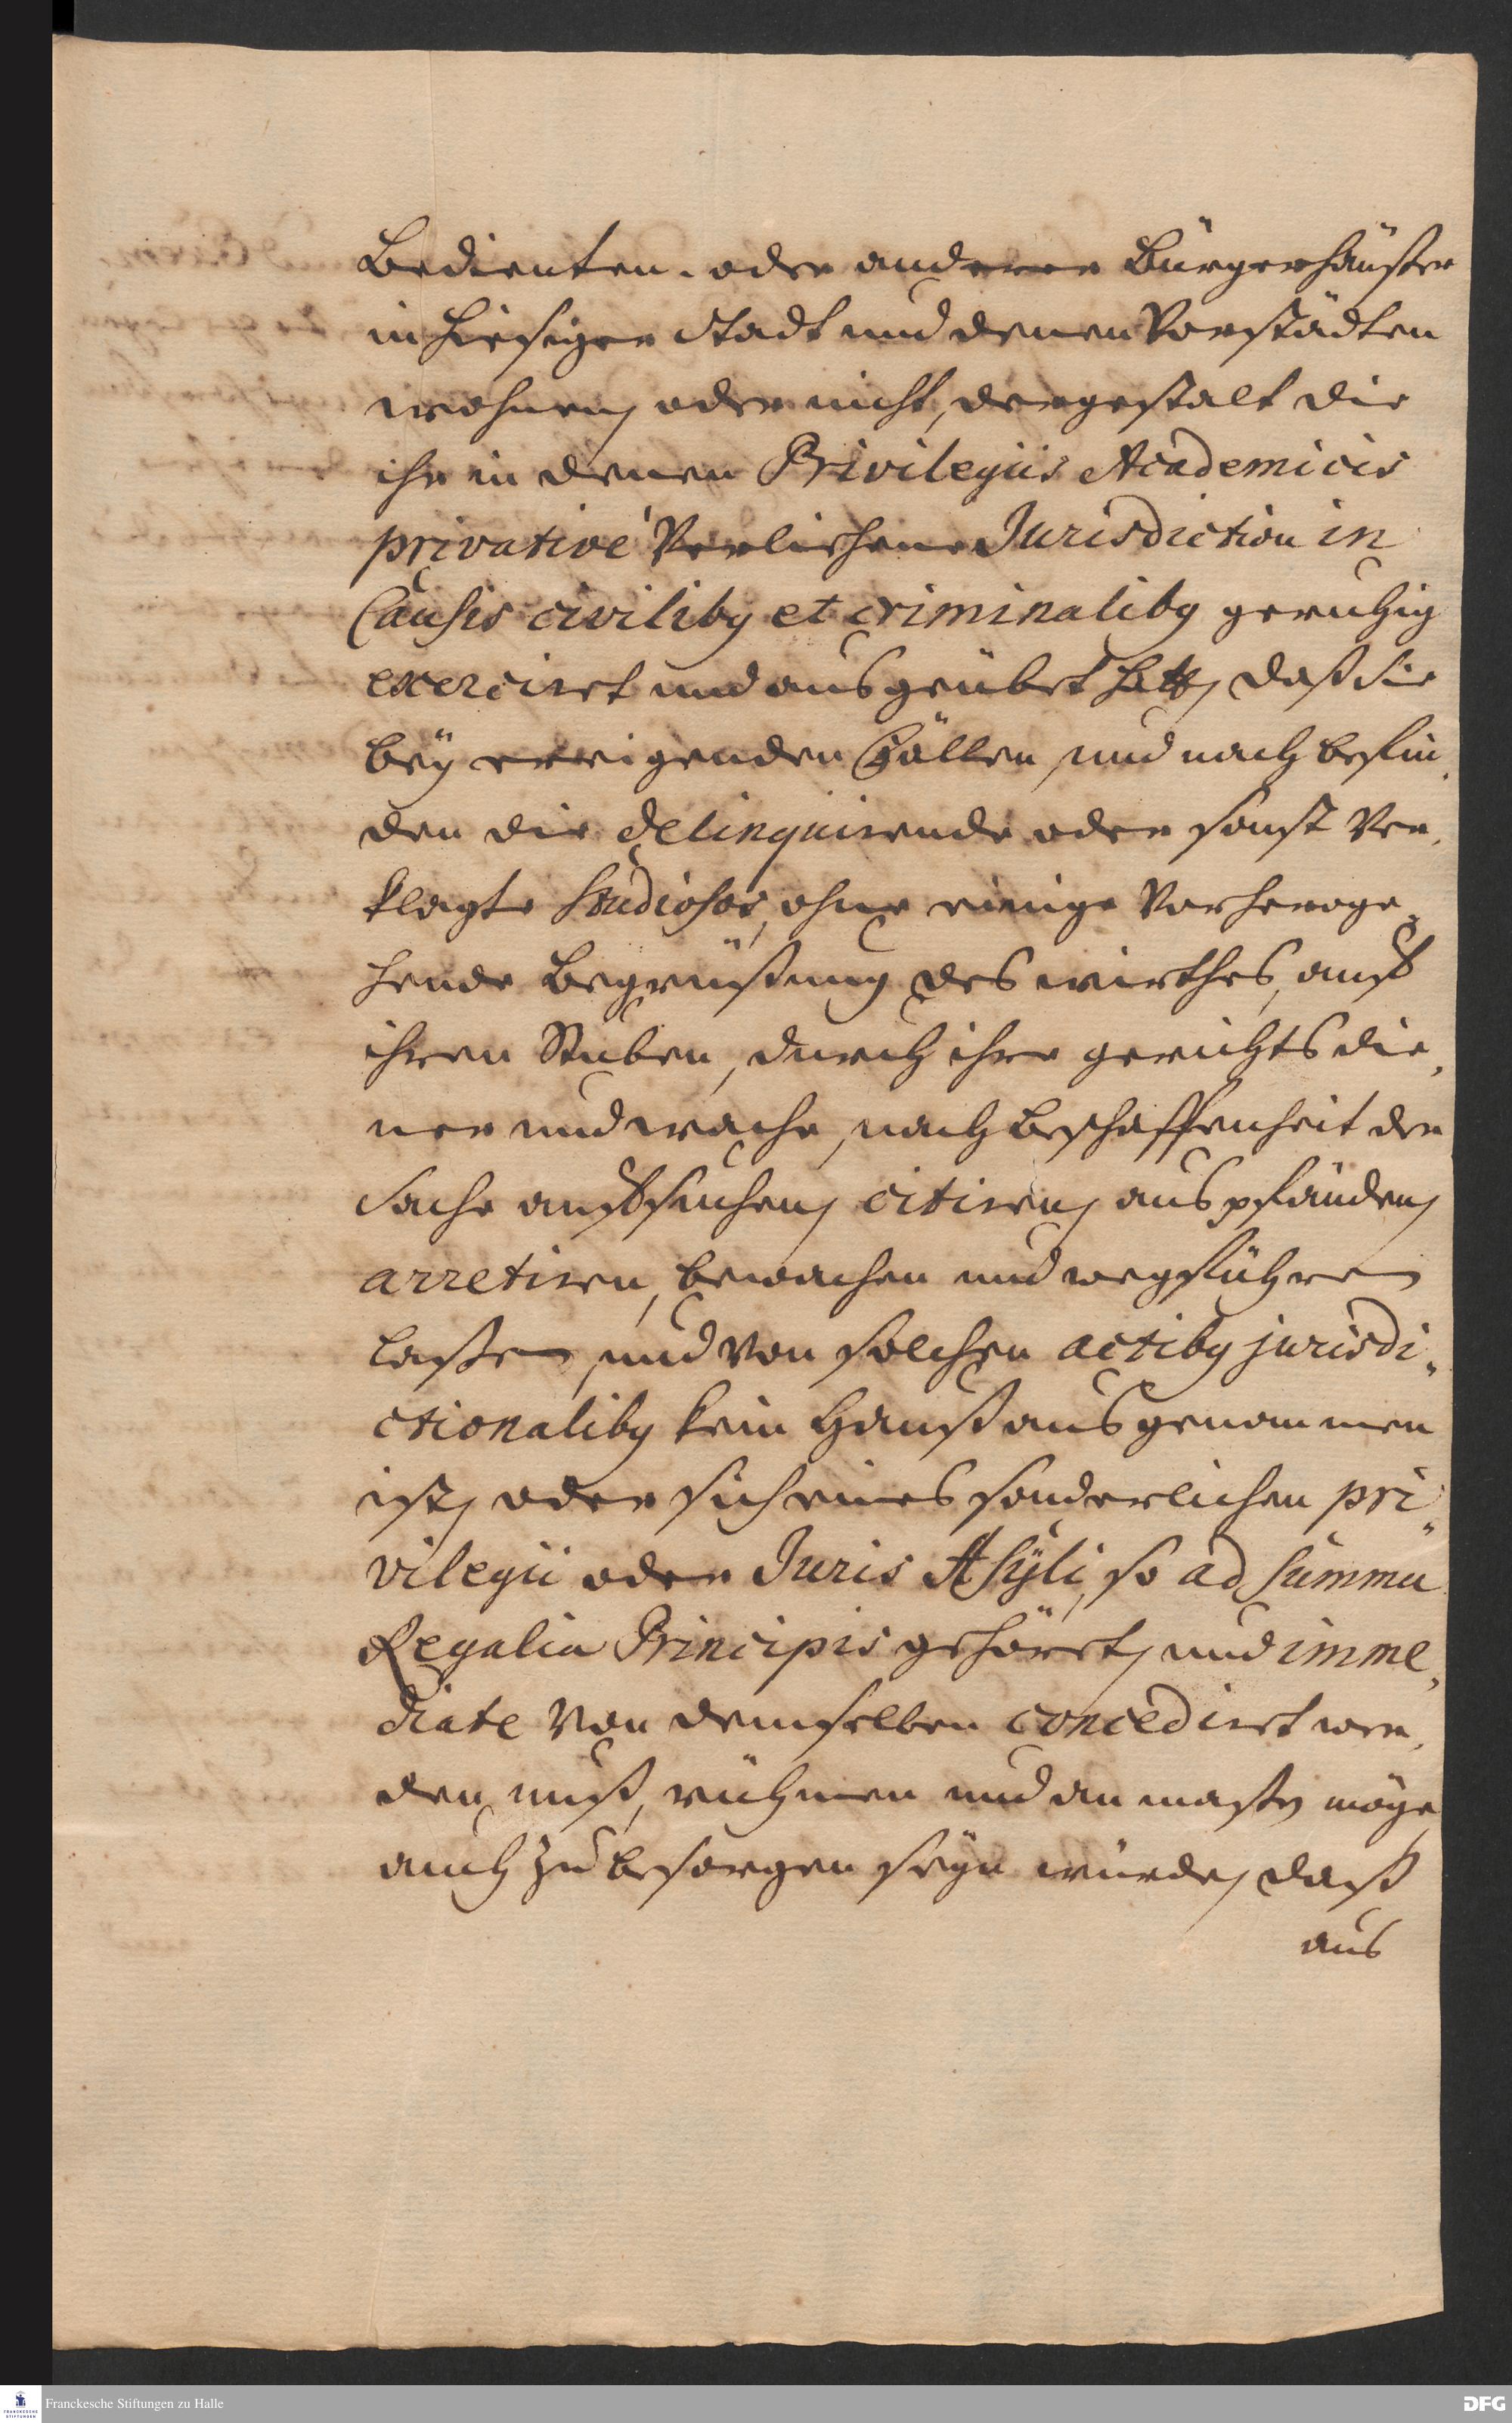 Bedienten- oder anderer Bürgerhäußer
in hiesiger Stadt und denen Vorstädten
wohnen, oder nicht, dergestalt die
ihr in denen Privilegiis Academicis
privativé Verliehene Jurisdiction in
Causis civilibg et criminalibg geruhig
exerciret und ausgeübet hatt, daß sie
beÿ ereigenden Fällen, und nach befin,
den die delinquirende oder sonst Ver,
klagte Studiosos, ohne einige Vorherge,
hende Begrüßung des wirthes, auff
ihren Stuben, durch ihre gerichtsdie,
ner und wache, nach beschaffenheit der
Sache auffsuchen, citiren, auspfänden,
arretiren, bewachen und wegführen
laßen, und von solchen actibg jurisdi,
ctionalibg kein Hauß ausgenommen
ist, oder sich eines sonderlichen pri,
vilegii oder Juris Asÿli, so ad summa
Regalia Principis gehöret, und imme,
diate von demselben concediret wer,
den muß, rühmen und anmaßen möge,
auch zu besorgen seÿn würde, daß
aus
Franckesche Stiftungen zu Halle
DFG